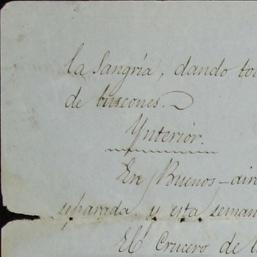 la Sangría, dando tod
de turcones.
Ynterior.
En Buenos-aire
eparada y esta seman
El Crucero de l